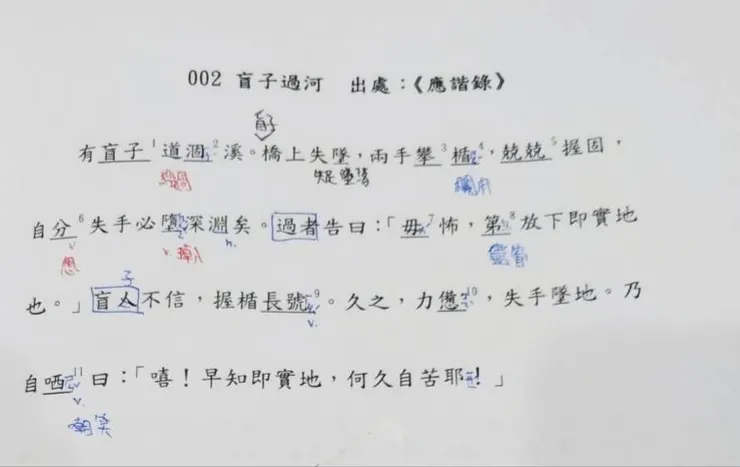 002 盲子過河 出處：《應諧錄》
盲子
有盲子1道涸2溪。橋上失墜，兩手攀3楯4，兢兢5握固，
經過 失足墜落 欄杆
自分6失手必墮深淵矣。過者告曰：「毋7怖，第8放下即實地
v. v. 掉入 n.
想
子
也。」盲人不信，握楯長號9。久之，力憊10，失手墜地。乃
v.
自哂11曰：「嘻！早知即實地，何久自苦耶！」
v.
嘲笑